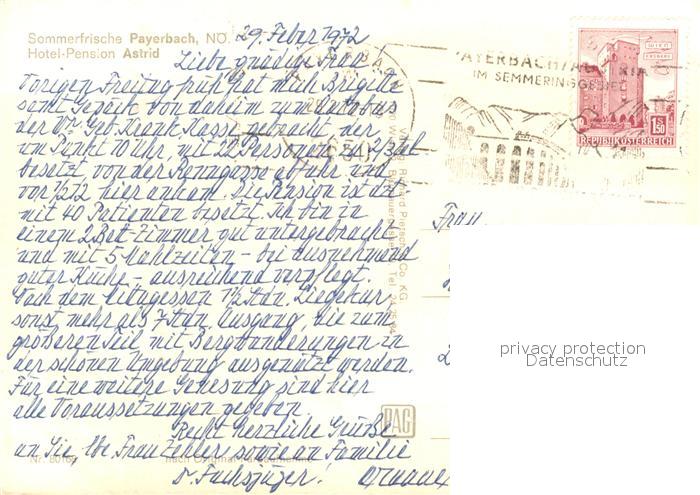 Sommerfrische Payerbach, NÖ.
Hotel-Pension Astrid
29. Feber 1972
Liebe gnädige Frau!
Vorigen Freitag früh hat mich Brigitte
samt Gepäck von daheim zum Autobus
der Geb. Krank. Kasse gebracht, der
um Punkt 10 Uhr, mit 22 Personen zu 2/3
besetzt von der Renngasse abfuhr und
vor 1/2 12 hier ankam. Die Pension ist
mit 40 Patienten besetzt. Ich bin in
einem 2 Bett-Zimmer gut untergebracht
und mit 5 Mahlzeiten - bei ausnehmend
guter Küche - ausreichend verpflegt.
Nach dem Mittagessen 1 1/2 Stdn. Liegekur,
sonst mehr als 7 Stdn. Ausgang, die zum
größeren Teil mit Bergwanderungen in
der schönen Umgebung ausgenützt werden.
Für eine weitere Genesung sind hier
alle Voraussetzungen gegeben.
Recht herzliche Grüße
an Sie, lbe. Frau sowie an Familie
Dr. Fuchsjäger!
Nr.
nach Original
PAG
PAYERBACH
IM SEMMERINGGEBIET
WIEN
ERDBERG
S 1.50
REPUBLIK ÖSTERREICH
Frau
privacy protection
Datenschutz